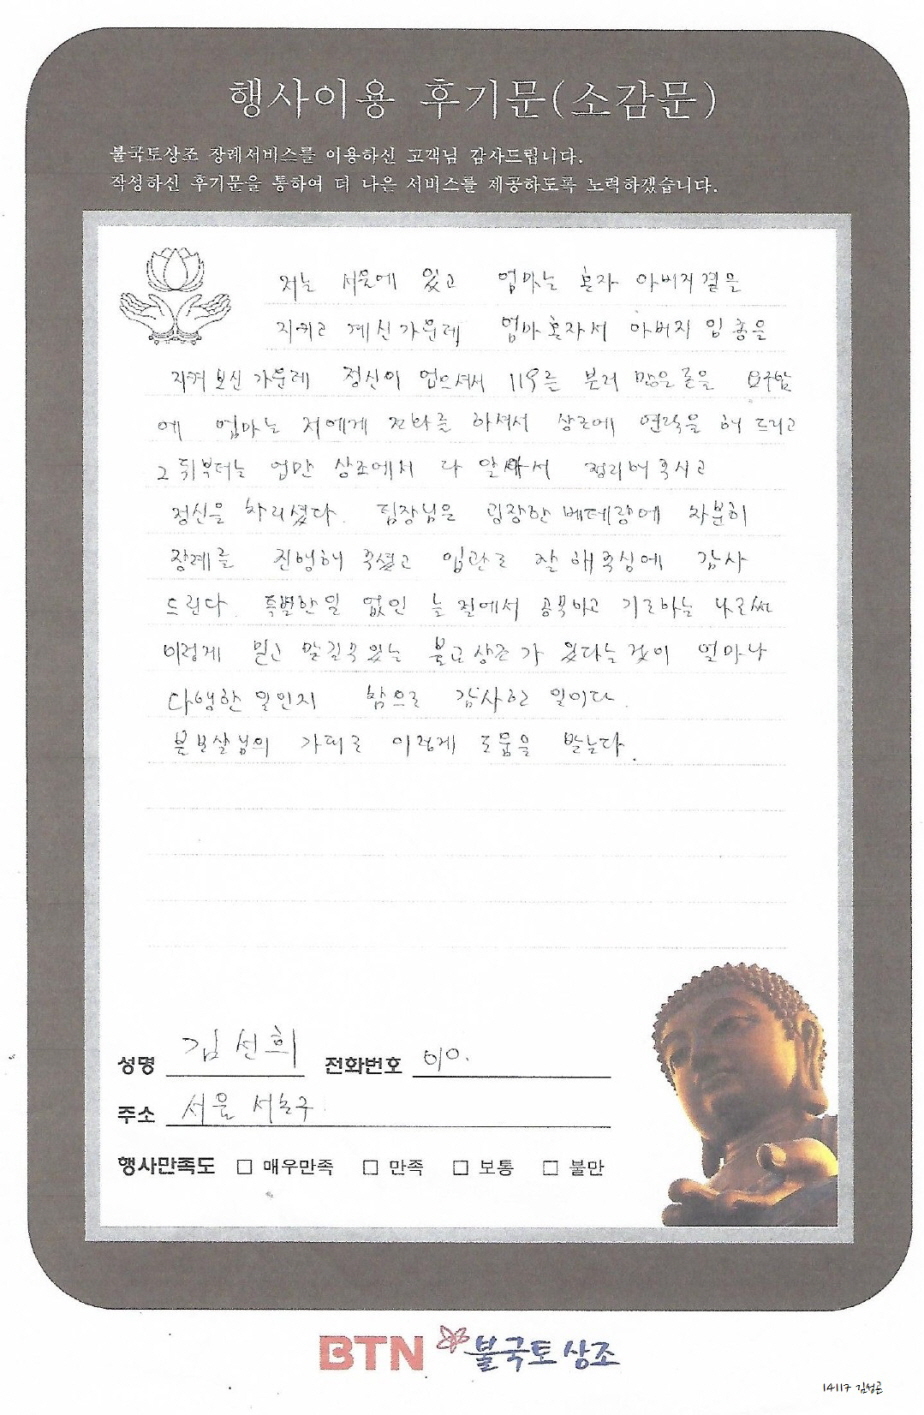 행사이용 후기문(소감문)
불국토상조 장례서비스를 이용하신 고객님 감사드립니다.
작성하신 후기문을 통하여 더 나은 서비스를 제공하도록 노력하겠습니다.
저는 서울에 있고 엄마는 혼자 아버지곁을
지키고 계신가운데 엄마혼자서 아버지 임종을
지켜 보신 가운데 정신이 없으셔서 119를 불러 많은 돈을
에 엄마는 저에게 전화를 하셔서 상조에 연락을 해 드리고
그 뒤부터는 상조에서 다 알아서 정리해 주시고
정신을 차리셨다. 팀장님은 굉장한 베테랑에 차분히
장례를 진행해 주셨고 입관도 잘 해주심에 감사
드린다. 특별한일 없인 늘 절에서 공부하고 기도하는 나로써
이렇게 믿고 맡길수있는 불교상조가 있다는것이 얼마나
다행한 일인지 참으로 감사한 일이다.
불보살님의 가피로 이렇게 도움을 받는다.
성명 김선희 전화번호 010.
주소 서울 서초구
행사만족도 □ 매우만족 □ 만족 □ 보통 □ 불만
BTN 불국토상조
14117 김성곤